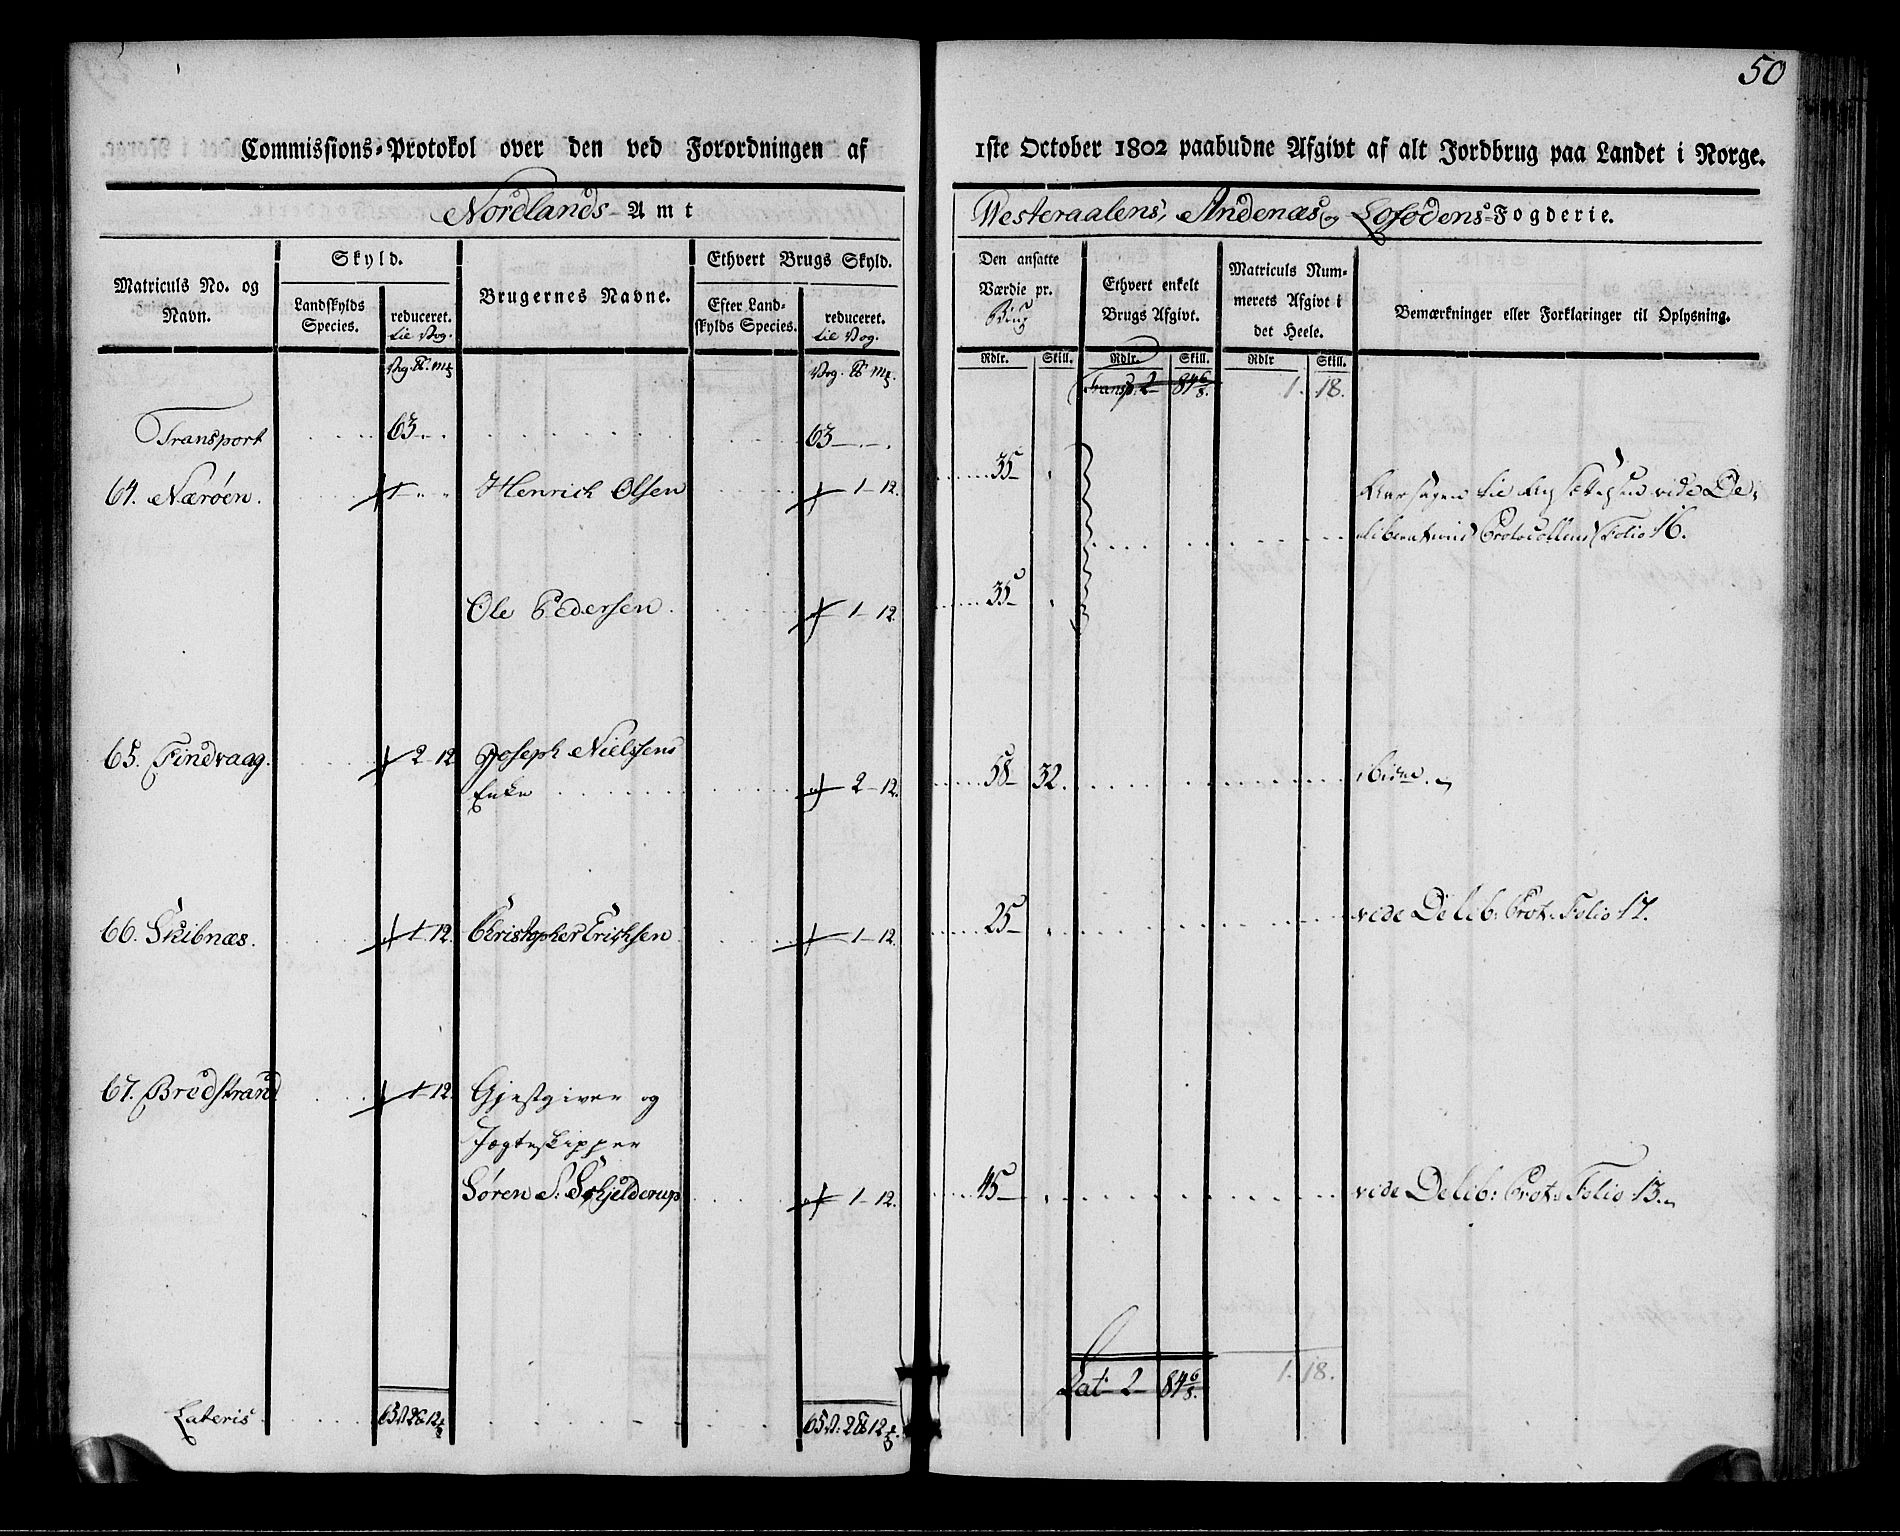 50
Commissions-Protokol over den ved Forordningen af 1ste October 1802 paabudne Afgivt af alt Jordbrug paa Landet i Norge.
Nordlands Amt
Westeraalens, Andenæs og Lofodens Fogderie.
Matriculs No. og Navn.
Skyld.
Landskylds Species.
reduceret. til Vog.
Brugernes Navne.
Ethvert Brugs Skyld.
Efter Landskylds Species.
reduceret. til Vog.
Den ansatte Værdie pr.
Ethvert enkelt Brugs Afgivt.
Matriculs Nummerets Afgivt i det Heele.
Bemærkninger eller Forklaringer til Oplysning.
Rdlr. Skill. Rdlr. Skill. Rdlr Skill.
Transp. 2 84 6/8. 1. 18.
Transport 63 63
64. Nærøen. Henrich Olsen 1-12. 35
vide Deliberations Protocollens Folio 16.
Ole Pedersen 1-12. 35
65. Findvaag. 2-12 Joseph Nielssens
Enke 2-12. 58 32. ibidm.
66. Skibnæs. 1-12. Christopher Erichsen 1-12. 25 vide Delib: Prot: Folio 17.
67. Bredstrand 1-12. Gjestgiver og
Jægteskipper
Søren S: Schjelderup 1-12. 45 vide Delib: Prot: Folio 13.
Lat 2 84 6/8. 1. 18.
Lateris 65 V: 2 12 65 V: 2 12